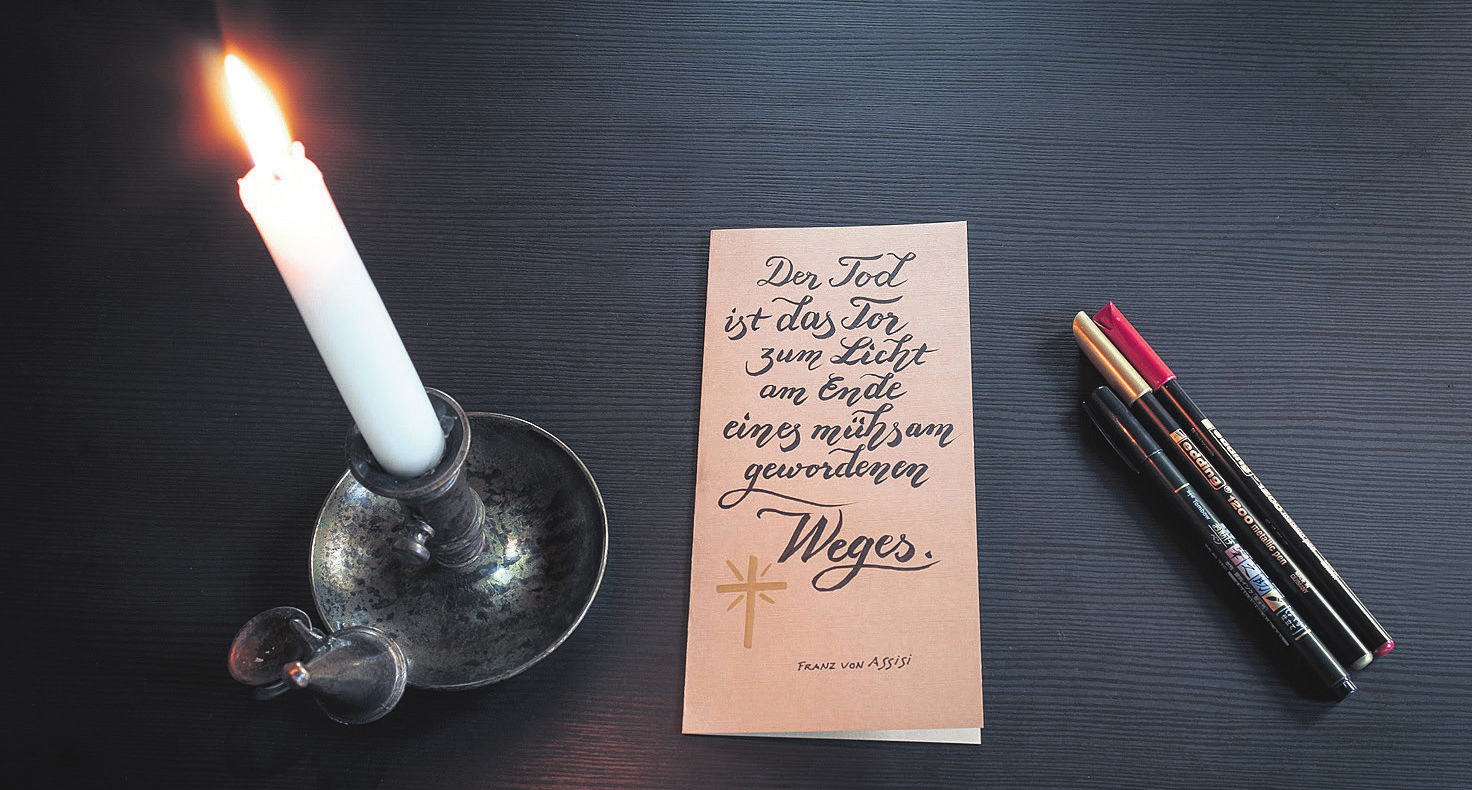 Der Tod
ist das Tor
zum Licht
am Ende
eines mühsam
gewordenen
Weges.
FRANZ VON ASSISI
edding
edding® 1200 metallic pen
Tombow